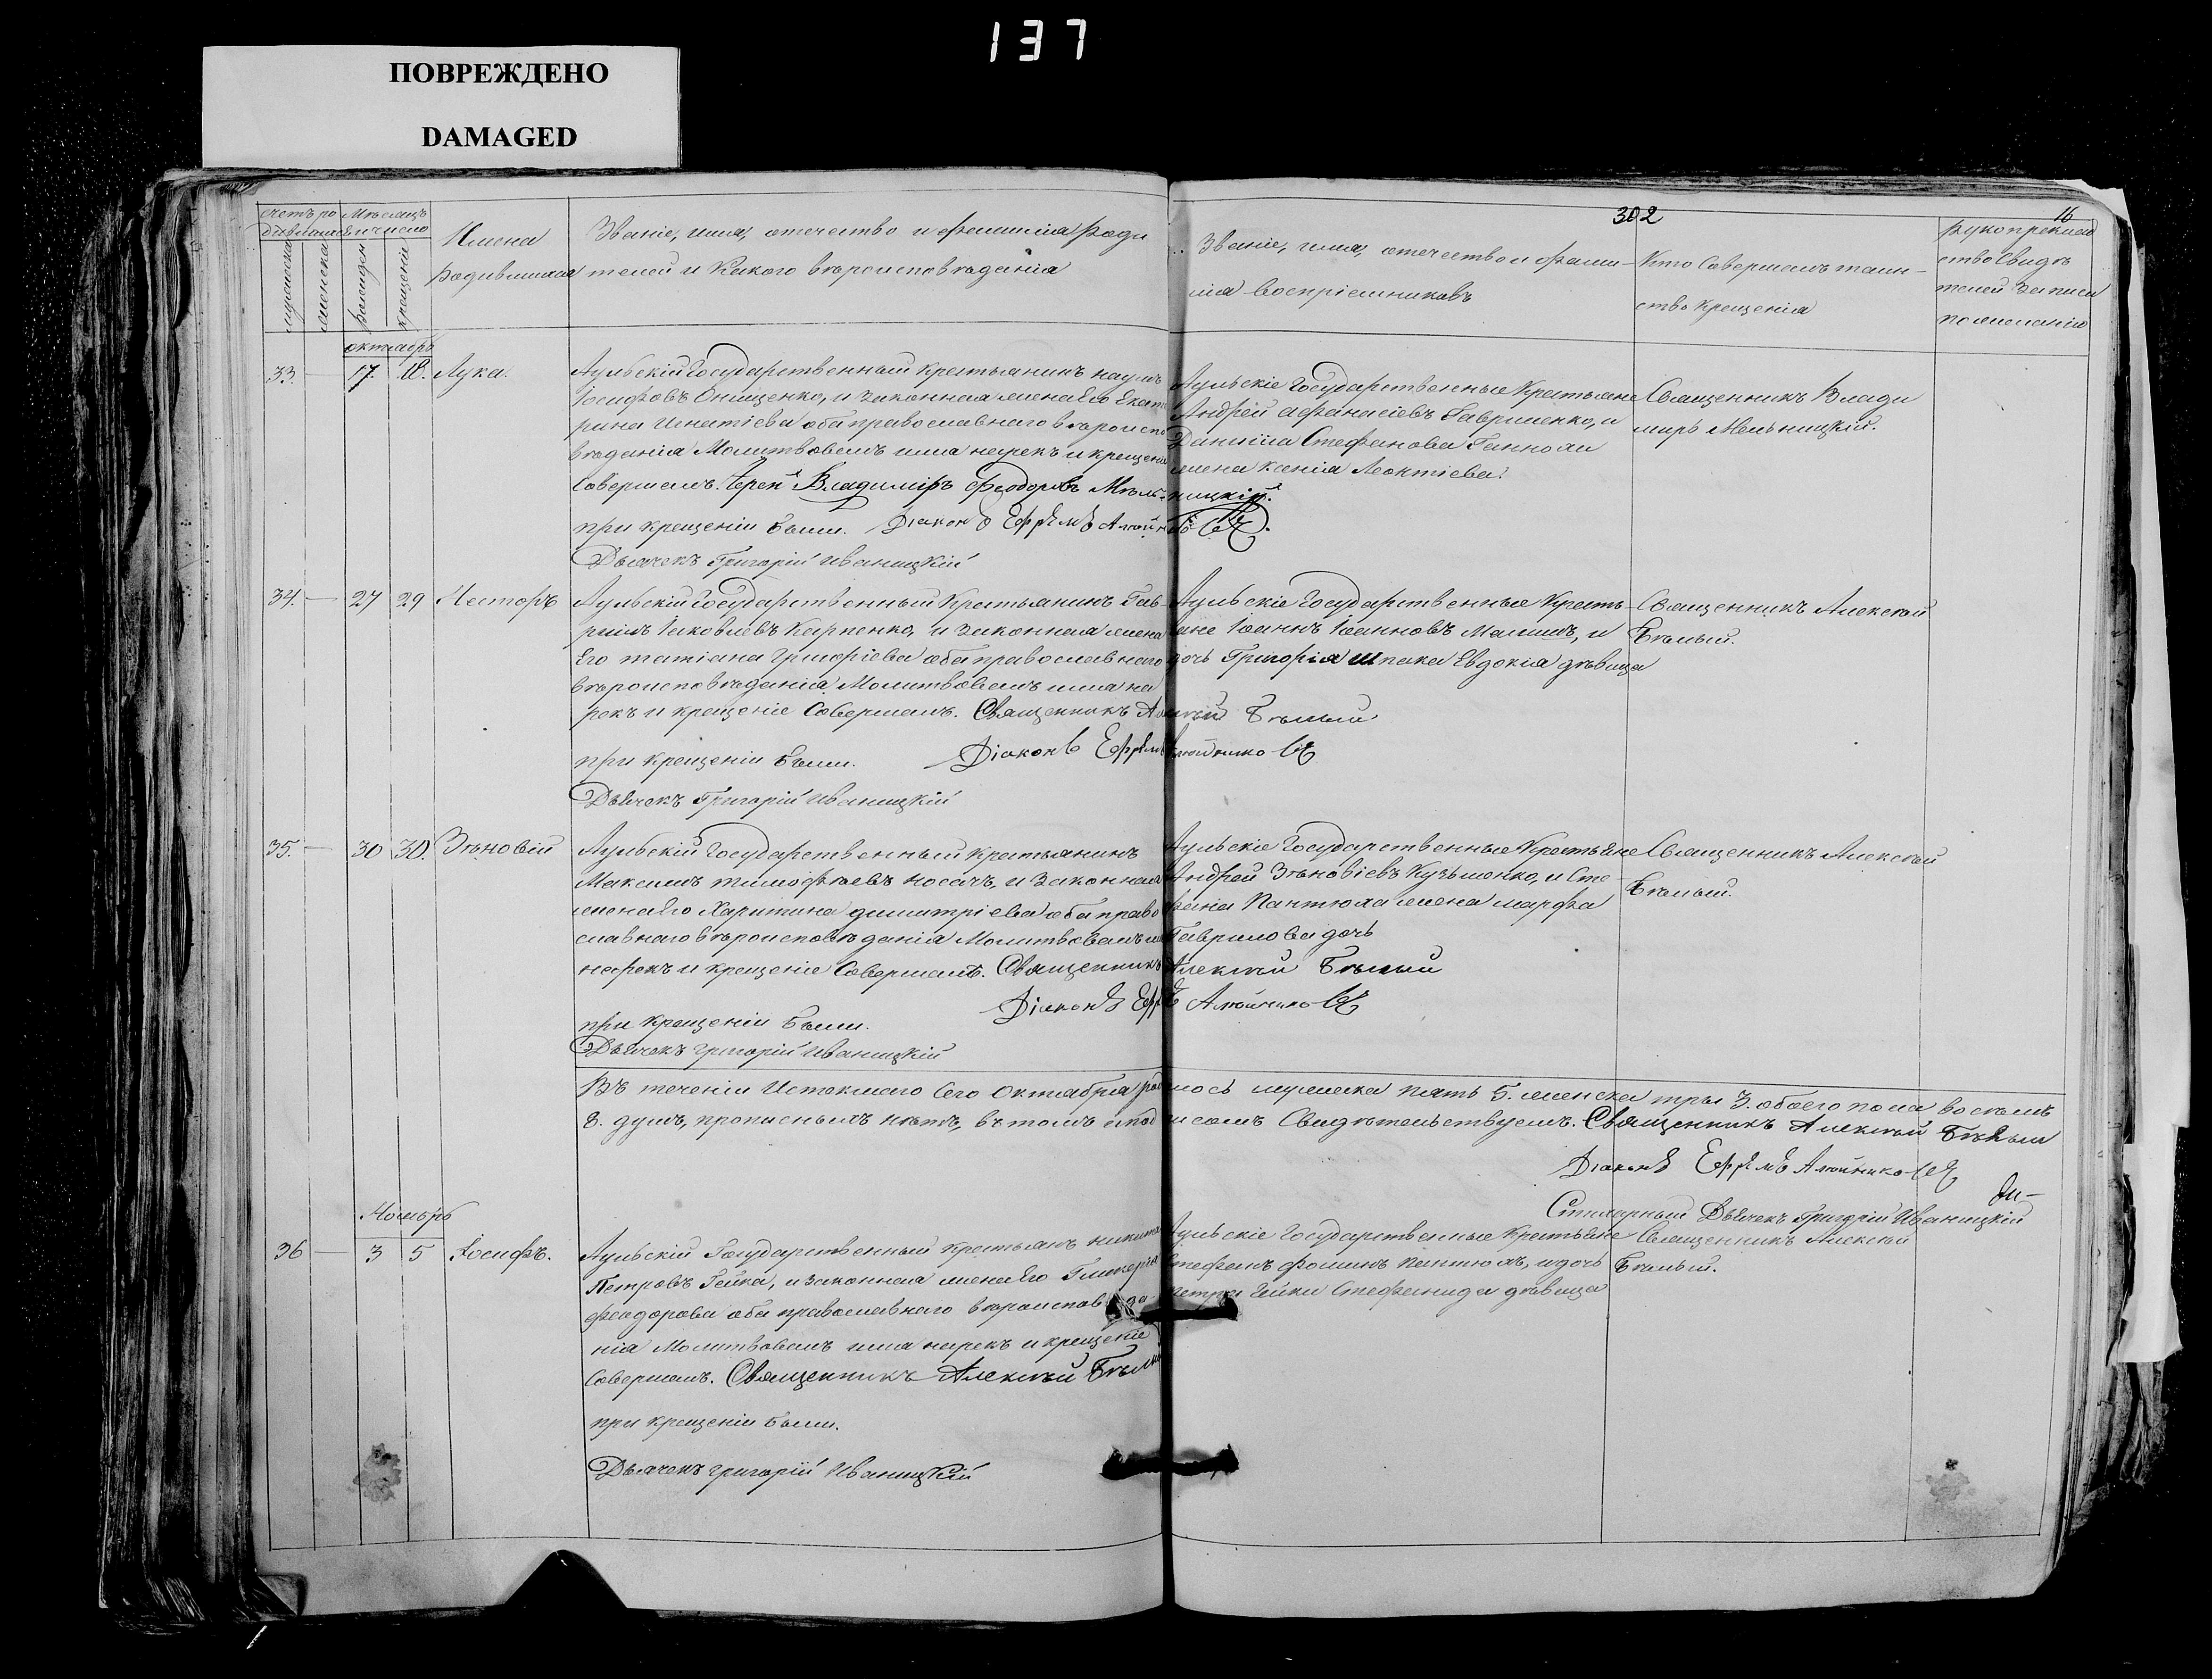 137
ПОВРЕЖДЕНО
DAMAGED
302
16
Счетъ ро
дившихся
Мѣсяцъ
и число
мужеска
женска
рожденія
крещенія
Имена
родившихся
Званіе, имя, отечество и фамилія роди
телей и какого вѣроисповѣданія
Званіе, имя, отечество и фами-
лія воспріемниковъ
Кто совершалъ таин-
ство крещенія
Рукоприклад
ство свидѣ
телей записи
по желанію
октябрь
33. — 17. 18. Лука.
Аульскій Государственный крестьянинъ наумъ
Іосифовъ Онищенко, и законная жена Его Екате
рина Игнатіева оба православнаго вѣроиспо
вѣданія Молитвовалъ имя нарекъ и крещеніе
Совершалъ. Іерей Владиміръ Феодоровъ Мель-ницкій.
при крещеніи были. Діаконъ Ефремъ
Дьячекъ Григорій Иваницкій
Аульскіе Государственные Крестьяне
Андрей Афанасіевъ Гавриленко, и
Даніила Стефанова
жена Ксенія Леонтіева.
Священникъ Влади
миръ Мельницкій.
34. — 27 29 Несторъ
Аульскій Государственный Крестьянинъ Гав-
рiилъ Іаковлевъ Карпенко, и законная жена
Его татіана Григоріева оба православнаго
вѣроисповѣданія Молитвовалъ имя на
рекъ и крещеніе Совершалъ. Священникъ Алексѣй Бѣлый
при крещеніи были. Діаконъ Ефремъ
Дьячекъ Григорій Иваницкій
Аульскіе Государственные Кресть-
яне Іоаннъ Іоанновъ и
дочь Григорія шпака Евдокія дѣвица
Священникъ Алексѣй
Бѣлый.
35. — 30 30. Зѣновій
Аульскій Государственный крестьянинъ
Максимъ тимофѣевъ носачъ, и законная
жена Его Харитина димитріева оба право
славнаго вѣроисповѣданія Молитвовалъ имя
нарекъ и крещеніе Совершалъ. Священникъ Алексѣй Бѣлый
Діаконъ
при крещеніи были.
Дьячекъ Григорій Иваницкій
Аульскіе Государственные Крестьяне
Андрей Зѣновіевъ Кузьменко, и Сте
фана Пантюха жена марфа
Гаврилова дочь
Священникъ Алексѣй
Бѣлый.
Въ теченіи Истекшаго Сего Октября родилось мужеска пять 5. женска три 3. обоего пола восемь
8. душъ, прописныхъ нѣтъ, въ томъ и подписомъ Свидѣтельствуемъ. Священникъ Алексѣй Бѣлый
Діаконъ Ефремъ
Дьячекъ Григорій Иваницкій
Ноябрь
36 — 3 5 Іосифъ.
Аульскій Государственный крестьянъ никита
Петровъ Гейка, и законная жена Его Гликерія
феодорова оба православнаго вѣроисповѣда-
нія Молитвовалъ имя нарекъ и крещеніе
Совершалъ. Священникъ Алексѣй Бѣлый
при крещеніи были.
Дьячекъ Григорій Иваницкій
Аульскіе Государственные Крестьяне
Стефанъ фоминъ Пантюхъ, и дочь
петра Гейки Стефанида дѣвица
Священникъ Алексѣй
Бѣлый.